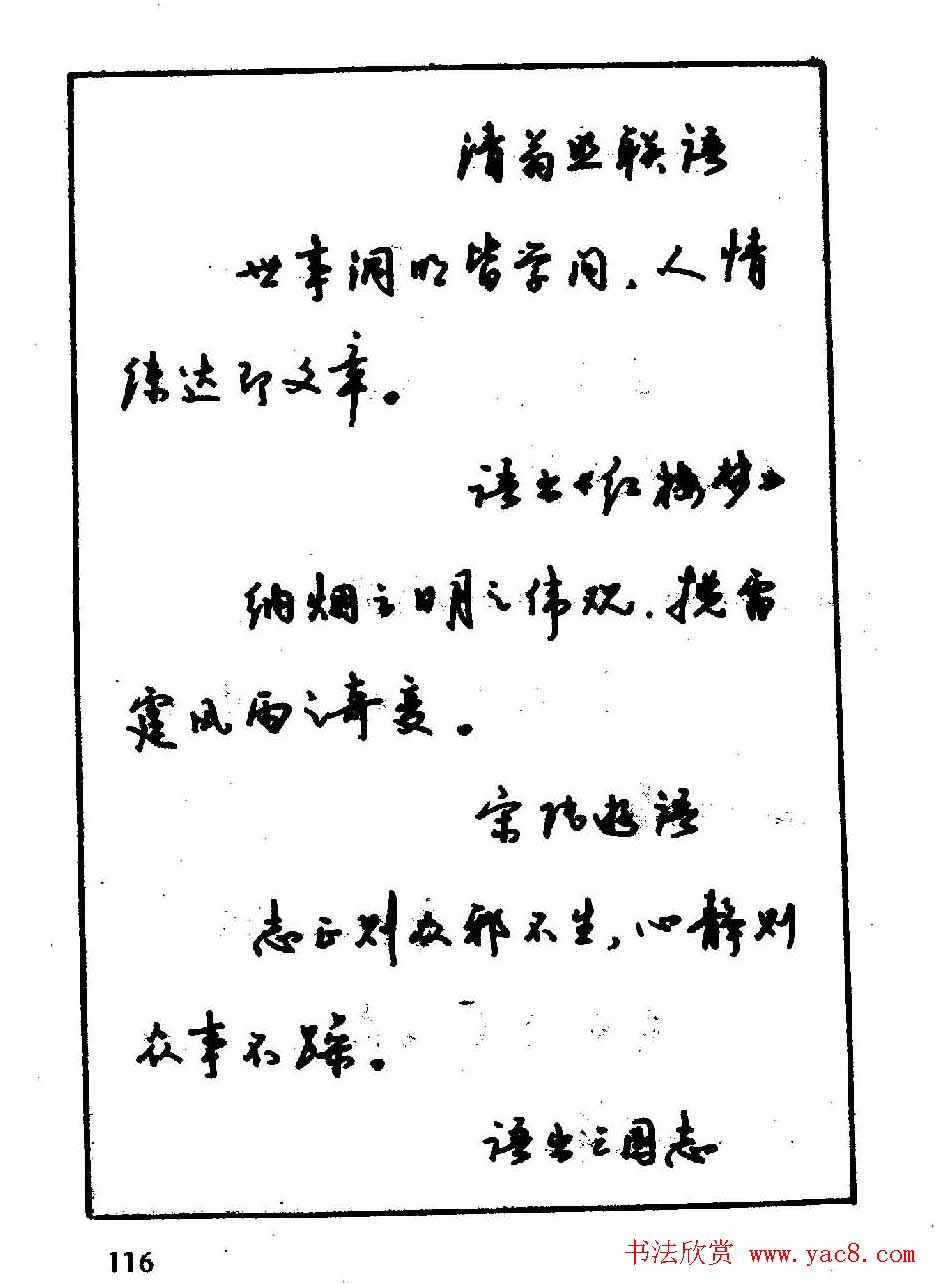 清联语
世事洞明皆学问,人情
练达即文章。
语出《红楼梦》
纳烟云日月之伟观,揽雷
霆风雨之奇变。
宋陆游语
志正则众邪不生,心静则
众事不躁。
语出三国志
116
书法欣赏 www.yac8.com